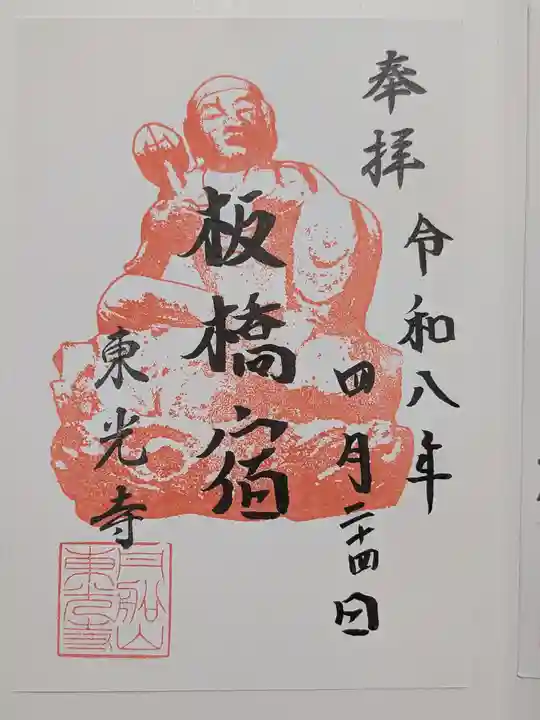 奉拝
令和八年
四月二十四日
板橋宿
東光寺
丹船山
東光寺